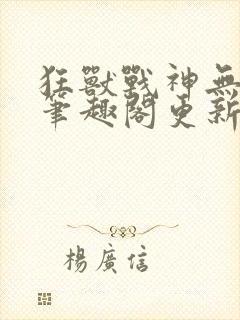 狂獸戰神無
筆趣閣更新
楊廣信